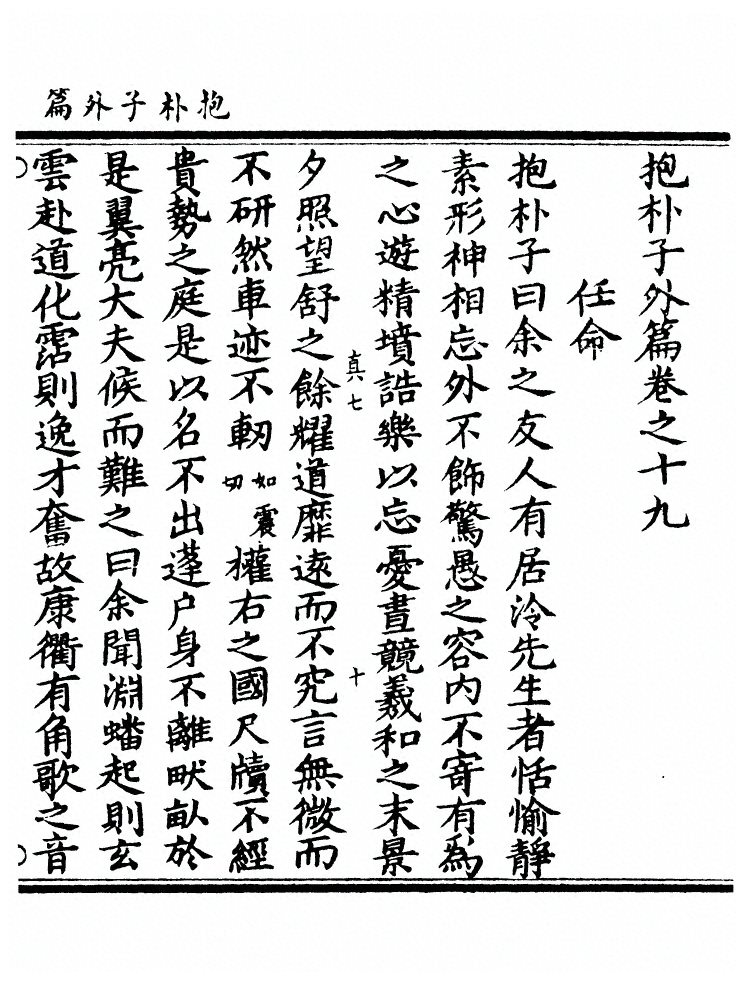 抱朴子外篇
抱朴子外篇卷之十九
任命
抱朴子曰余之友人有居泠先生者恬愉靜
素形神相忘外不飾驚愚之容內不寄有爲
之心遊精墳誥樂以忘憂晝競羲和之末景
真七
十
夕照望舒之餘耀道靡遠而不究言無微而
不研然車迹不軔如震切㩲右之國尺牘不經
貴勢之庭是以名不出蓬户身不離畎畝於
是翼亮大夫候而難之曰余聞淵蟠起則玄
雲赴道化霑則逸才奮故康衢有角歌之音